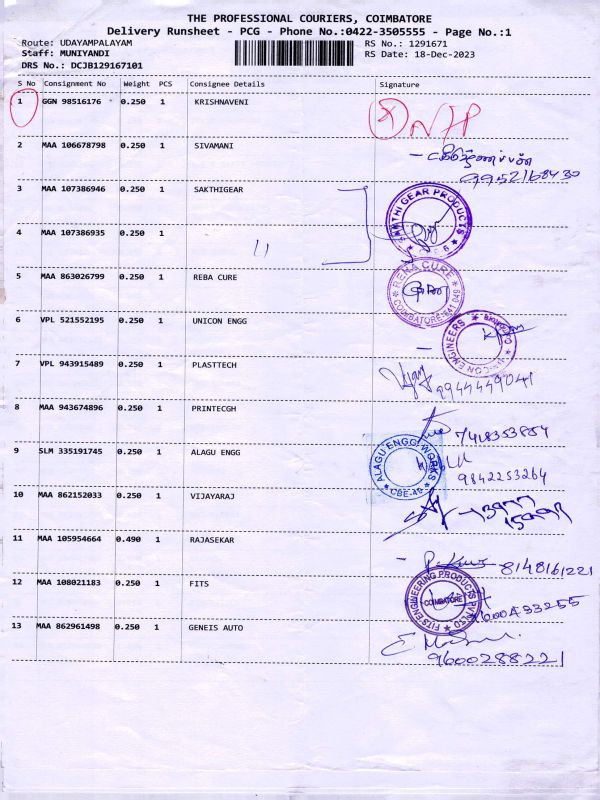 THE PROFESSIONAL COURIERS, COIMBATORE
Delivery Runsheet - PCG - Phone No.:0422-3505555 - Page No.:1
Route: UDAYAMPALAYAM
Staff: MUNIYANDI
DRS No.: DCJB129167101
RS No.: 1291671
RS Date: 18-Dec-2023
S No Consignment No Weight PCS Consignee Details Signature
1 GGN 98516176 0.250 1 KRISHNAVENI
2 MAA 106678798 0.250 1 SIVAMANI
9952168430
3 MAA 107386946 0.250 1 SAKTHIGEAR
SAKTHI GEAR PRODUCTS
4 MAA 107386935 0.250 1 11
5 MAA 863026799 0.250 1 REBA CURE
RENA CURE COIMBATORE-641 049
6 VPL 521552195 0.250 1 UNICON ENGG
7 VPL 943915489 0.250 1 PLASTTECH
Vijay 9944449041
8 MAA 943674896 0.250 1 PRINTECGH
7418353854
9 SLM 335191745 0.250 1 ALAGU ENGG
ALAGU ENGG WORKS CBE-49
9842253264
10 MAA 862152033 0.250 1 VIJAYARAJ
11 MAA 105954664 0.490 1 RAJASEKAR
8148161221
12 MAA 108021183 0.250 1 FITS
FITS ENGINEERING PRODUCTS PVT LTD COIMBATORE
9600433255
13 MAA 862961498 0.250 1 GENEIS AUTO
9600288221